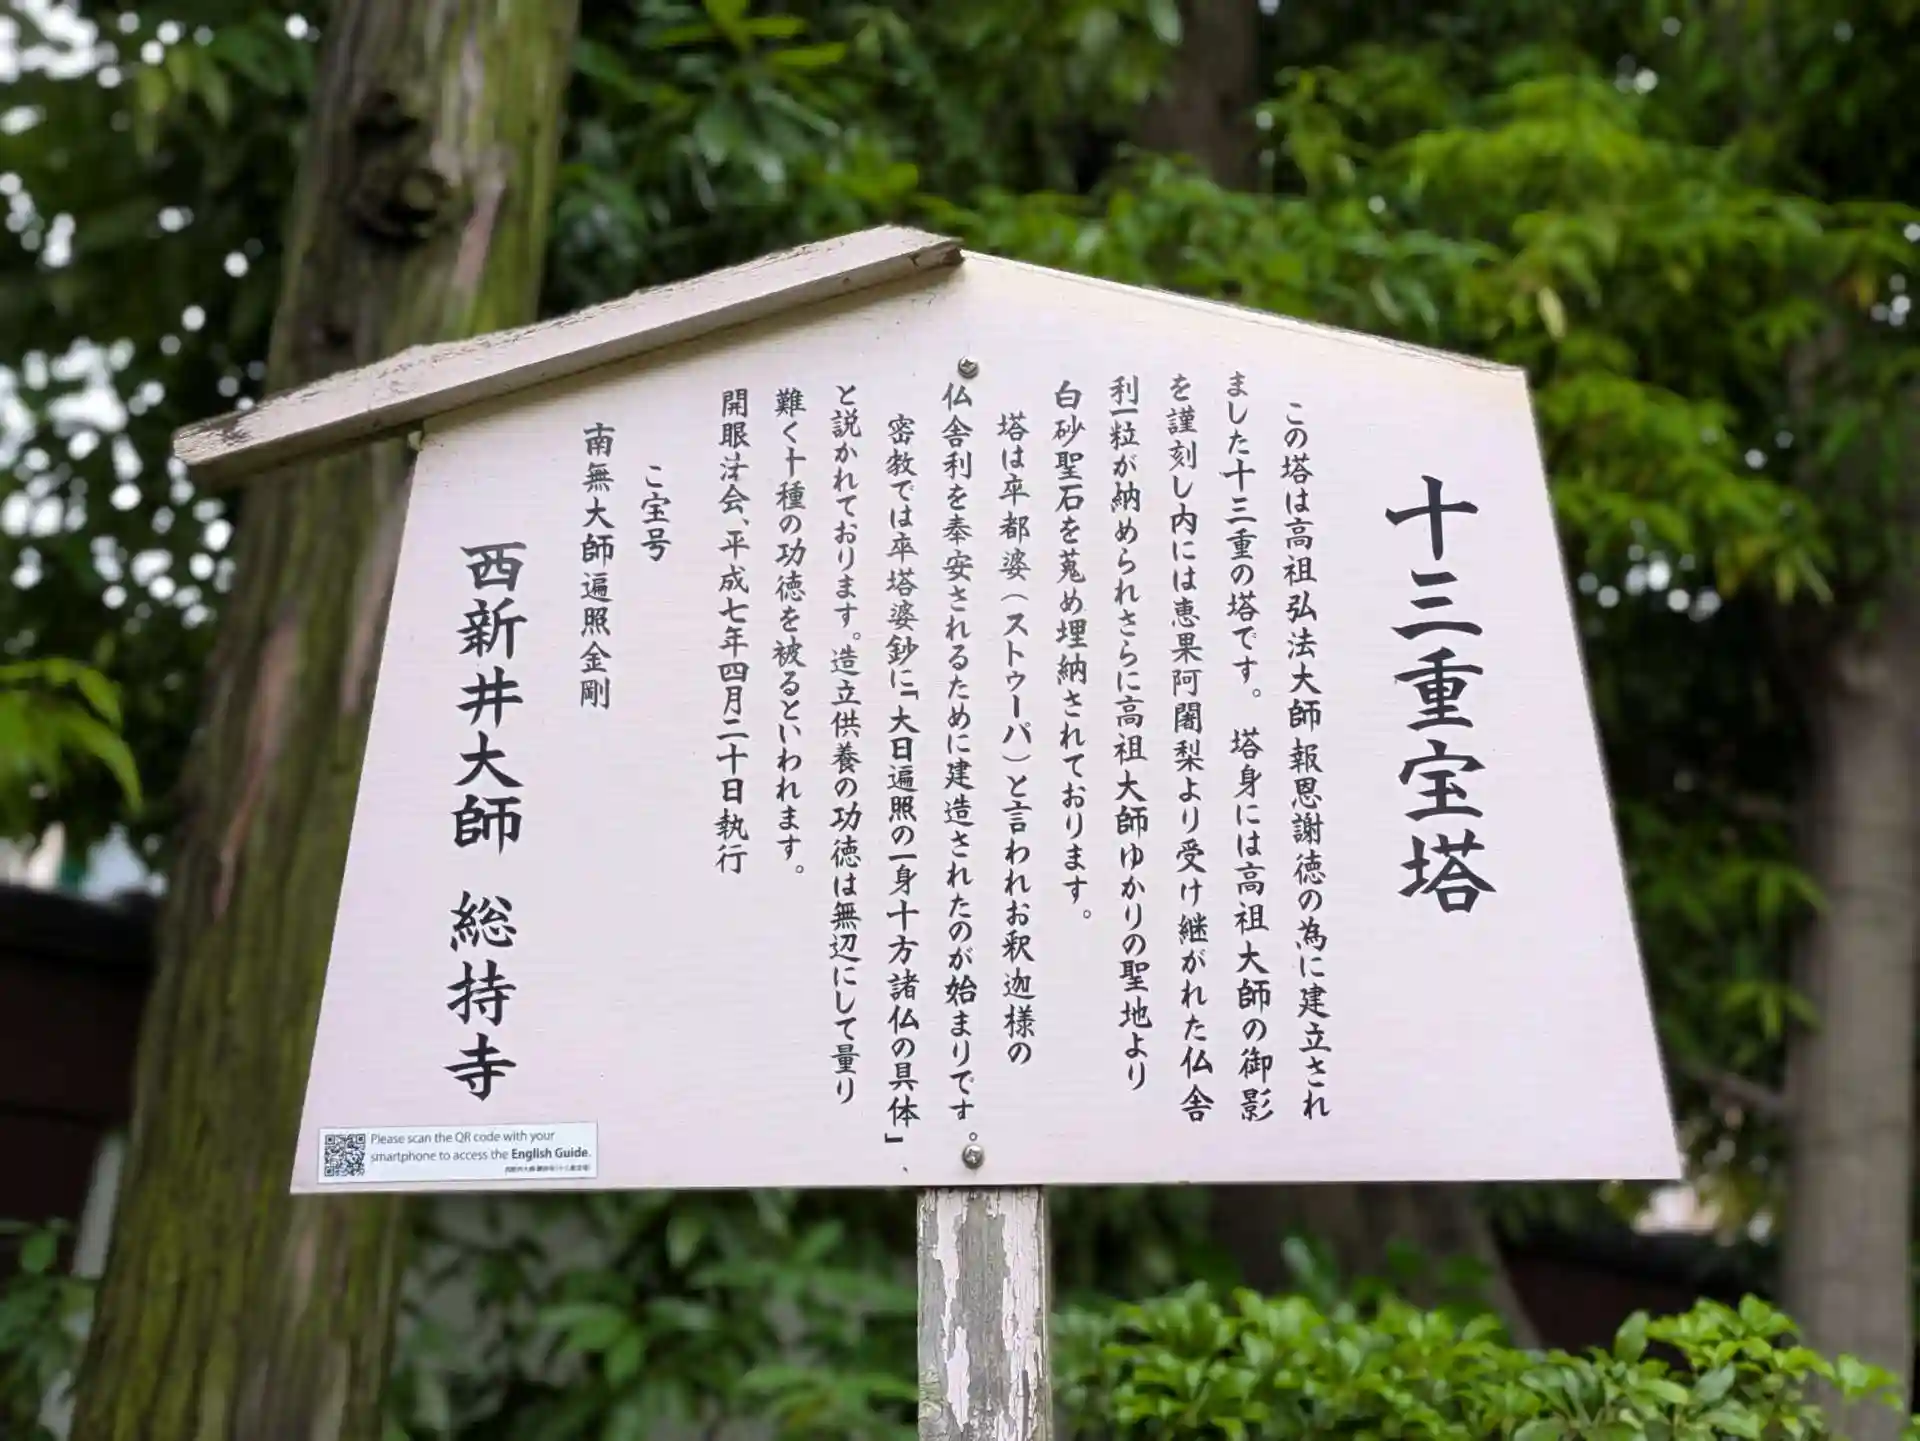 十三重宝塔
この塔は高祖弘法大師報恩謝徳の為に建立され
ました十三重の塔です。 塔身には高祖大師の御影
を謹刻し内には恵果阿闍梨より受け継がれた仏舎
利一粒が納められさらに高祖大師ゆかりの聖地より
白砂聖石を蒐め埋納されております。
塔は卒都婆(ストゥーパ)と言われお釈迦様の
仏舎利を奉安されるために建造されたのが始まりです。
密教では卒塔婆鈔に「大日遍照の一身十方諸仏の具体」、
と説かれております。造立供養の功徳は無辺にして量り
難く十種の功徳を被るといわれます。
開眼法会、平成七年四月二十日執行
ご宝号
南無大師遍照金剛
西新井大師 総持寺
Please scan the QR code with your
smartphone to access the English Guide.